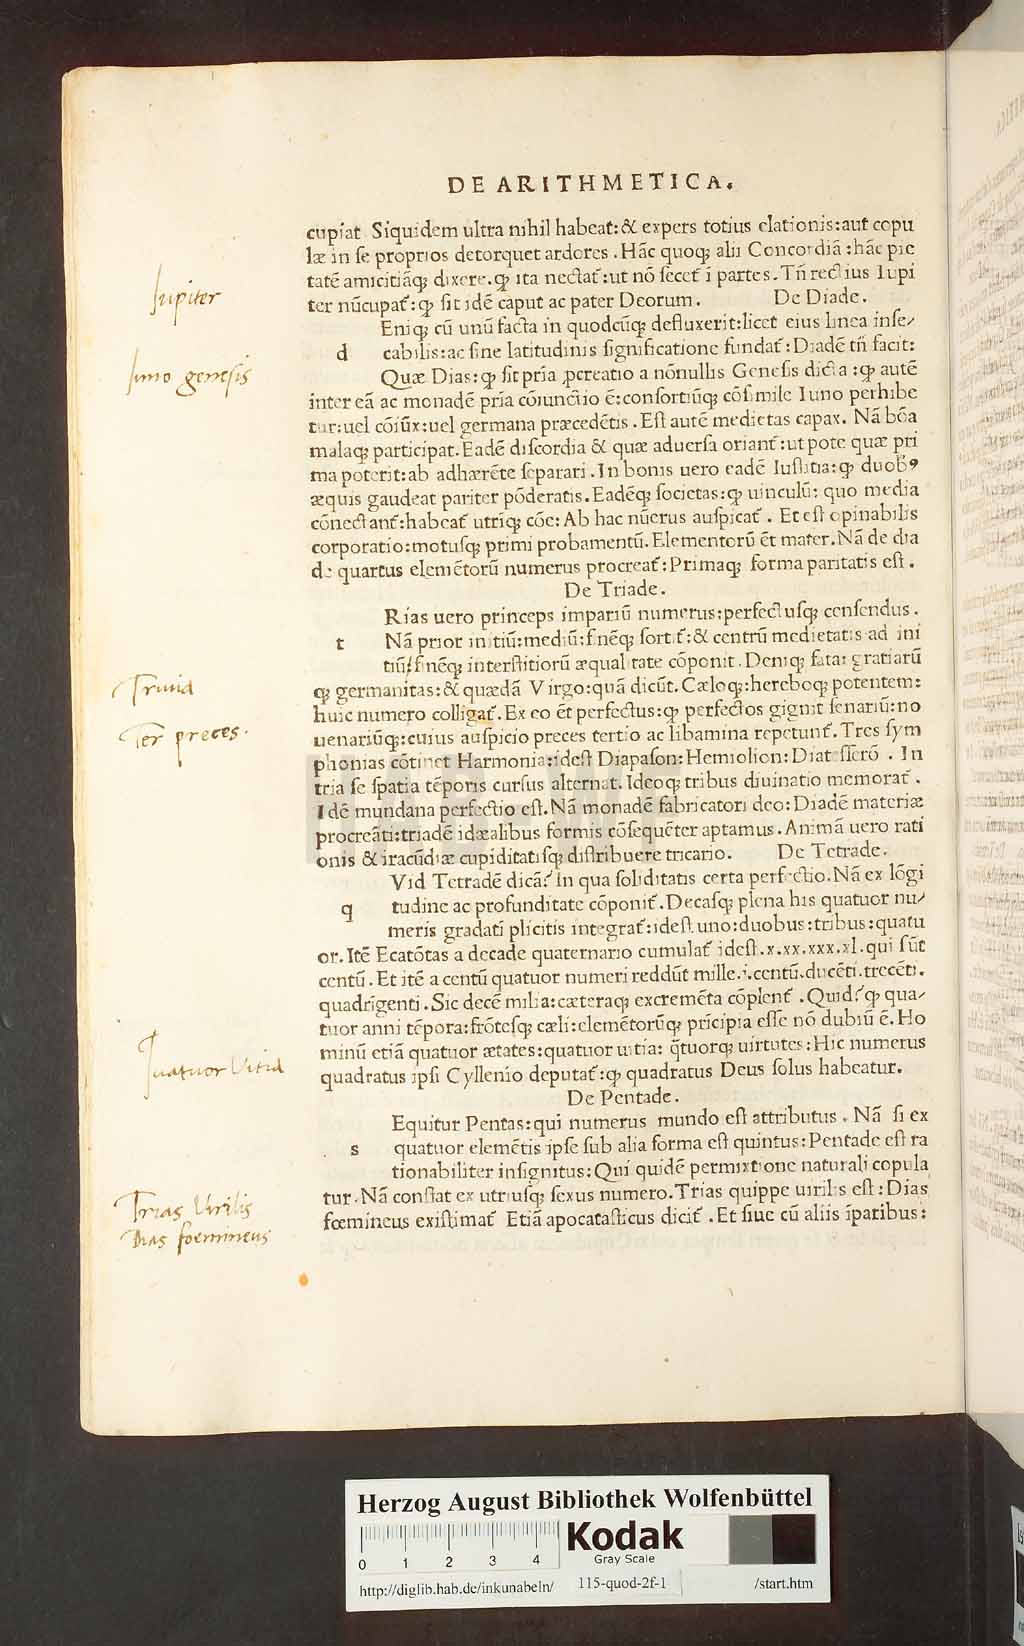 DE ARITHMETICA.
cupiat Siquidem ultra nihil habeat:& expers totius elationis:aut copu
læ in se proprios detorquet ardores. Hãc quoq; alii Concordiã:hãc pie
tatẽ amicitiãq; dixere. ꝙ ita nectat̃:ut nõ secet ĩ partes. Tñ rectius Iupi
ter nũcupat̃:ꝙ sit idẽ caput ac pater Deorum. De Diade.
Eniq; cũ unũ facta in quodcũq; defluxerit:licet eius linea inse/
d cabilis:ac sine latitudinis significatione fundat̃:Diadẽ tñ facit:
Quæ Dias:ꝙ sit pria ꝓcreatio a nõnullis Genesis dicta:ꝙ autẽ
inter eã ac monadẽ pria cõiunctio ẽ:consortiũq; cõsimile Iuno perhibe
tur:uel cõiũx:uel germana præcedẽtis. Est autẽ medietas capax. Nã bõa
malaq; participat. Eadẽ discordia & quæ aduersa oriant̃:ut pote quæ pri
ma poterit:ab adhærẽte separari. In bonis uero eadẽ Iustitia:ꝙ duobꝰ
æquis gaudeat pariter põderatis. Eadẽq; societas:ꝙ uinculũ: quo media
cõnectant̃:habeat̃ utriq; cõe: Ab hac nũerus auspicat̃. Et est opinabilis
corporatio:motusq; primi probamentũ. Elementorũ ẽt mater. Nã de dia
de quartus elemẽtorũ numerus procreat̃:Primaq; forma paritatis est.
De Triade.
Rias uero princeps impariũ numerus:perfectusq; censendus.
t Nã prior initiũ:mediũ:finẽq; sortit̃:& centrũ medietatis ad ini
tiũ/finẽq; interstitiorũ æqualitate cõponit. Deniq; fata: gratiarũ
q; germanitas:& quædã Virgo:quã dicũt. Cæloq;:hereboq; potentem:
huic numero colligat̃. Ex eo ẽt perfectus:ꝙ perfectos gignit senariũ:no
uenariũq;:cuius auspicio preces tertio ac libamina repetunt̃. Tres sym
phonias cõtinet Harmonia:idest Diapason:Hemiolion:Diatesserõ. In
tria se spatia tẽporis cursus alternat. Ideoq; tribus diuinatio memorat̃.
Idẽ mundana perfectio est. Nã monadẽ fabricatori deo:Diadẽ materiæ
procreãti:triadẽ idæalibus formis cõsequẽter aptamus. Animã uero rati
onis & iracũdiæ cupiditatisq; distribuere tricario. De Tetrade.
Vid Tetradẽ dicã? in qua soliditatis certa perfectio. Nã ex lõgi
q tudine ac profunditate cõponit̃. Decasq; plena his quatuor nu/
meris gradatĩ plicitis integrat̃:idest uno:duobus:tribus:quatu
or. Itẽ Ecatõtas a decade quaternario cumulat̃ idest.x.xx.xxx.xl.qui sũt
centũ. Et itẽ a centũ quatuor numeri reddũt mille.i.centũ.ducẽti.trecẽti.
quadrĩgenti. Sic decẽ milia:cæteraq; excremẽta cõplent̃. Quid? ꝙ qua/
tuor anni tẽpora:frõtesq; cæli:elemẽtorũq; pricipia esse nõ dubiũ ẽ. Ho
minũ etiã quatuor ætates:quatuor uitia: q̃tuorq; uirtutes:Hic numerus
quadratus ipsi Cyllenio deputat̃:ꝙ quadratus Deus solus habeatur.
De Pentade.
Equitur Pentas:qui numerus mundo est attributus. Nã si ex
s quatuor elemẽtis ipse sub alia forma est quintus:Pentade est ra
tionabiliter insignitus:Qui quidẽ permixtione naturali copula
tur. Nã constat ex utriusq; sexus numero. Trias quippe uirilis est:Dias
fœmineus existimat̃ Etiã apocatasticus dicit̃. Et siue cũ aliis ĩparibus:
Jupiter
Juno genesis
Triuia
Ter preces.
Quatuor Vitia
Trias Virilis
Dias foemineus
HAB WF
Herzog August Bibliothek Wolfenbüttel
0 1 2 3 4
Kodak
Gray Scale
http://diglib.hab.de/inkunabeln/ 115-quod-2f-1 /start.htm